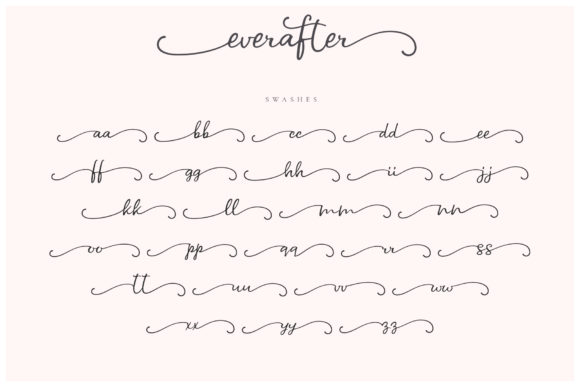 everafter
SWASHES
aa bb cc dd ee
ff gg hh ii jj
kk ll mm nn
oo pp qq rr ss
tt uu vv ww
xx yy zz